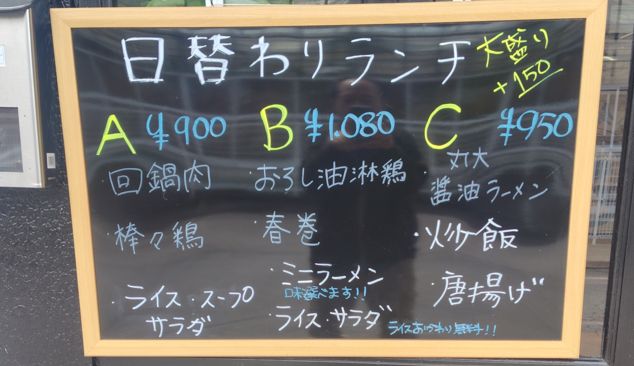 日替わりランチ
大盛り
+150
A ¥900
回鍋肉
棒々鶏
・ライス・スープ
サラダ
B ¥1.080
・おろし油淋鶏
・春巻
・ミニラーメン
味選べます!!
・ライス・サラダ
ライスおかわり無料!!
C ¥950
・丸大
醤油ラーメン
・炒飯
・唐揚げ